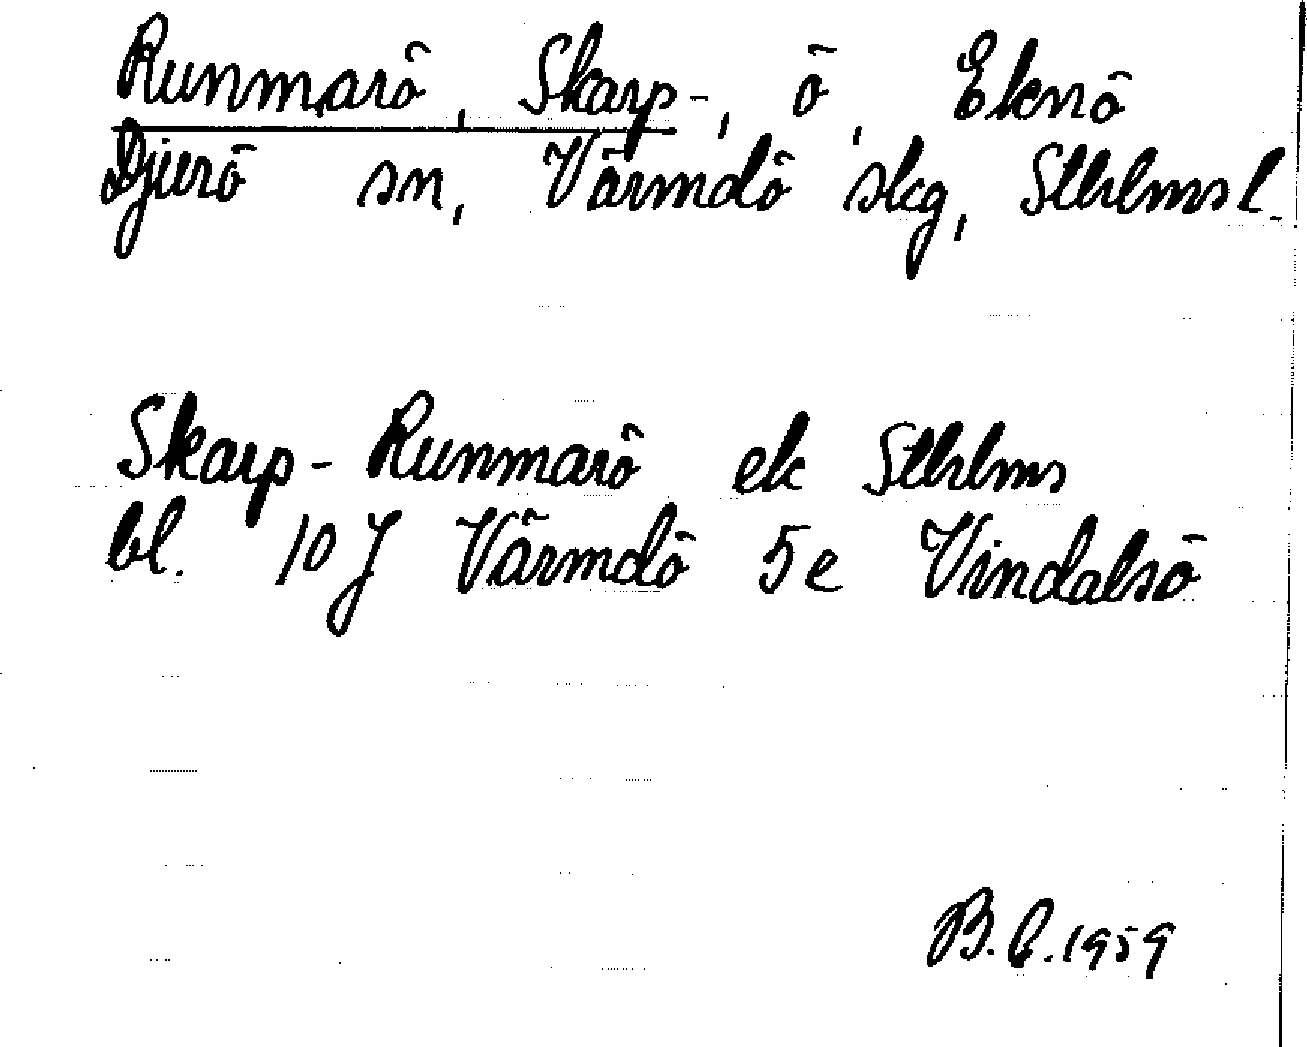 Runmarö, Skarp-, ö, Eknö
Djurö sn, Värmdö skg, Sthlms l.
Skarp-Runmarö ek Sthlms
bl. 10J Värmdö 5e Vindalsö
B.C. 1959